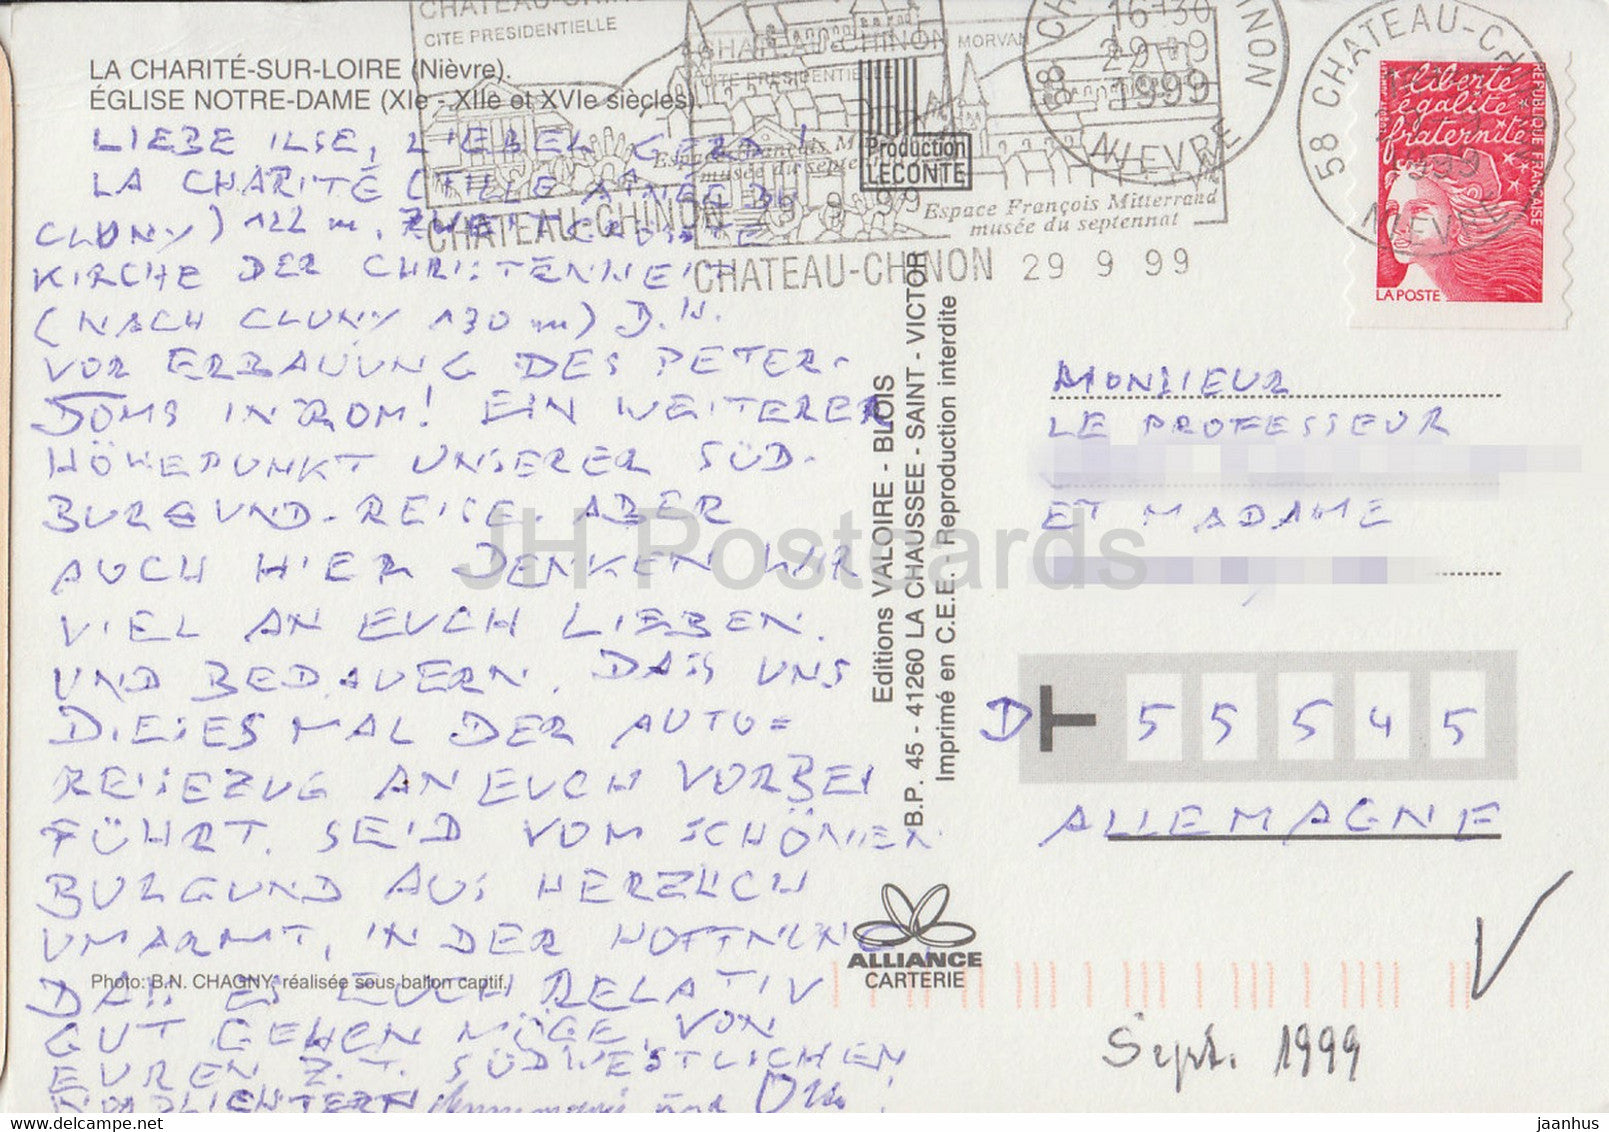 LA CHARITÉ-SUR-LOIRE (Nièvre).
ÉGLISE NOTRE-DAME (XIe - XIIe et XVIe siècles).
LIEBE ILSE, LIEBER GERD!
LA CHARITÉ (FILLE AÎNÉE DE
CLUNY) 122 m, ZWEITGRÖSSTE
KIRCHE DER CHRISTENHEIT
(NACH CLUNY 130 m) D.H.
VOR ERBAUUNG DES PETER-
DOMS IN ROM! EIN WEITERER
HÖHEPUNKT UNSERER SÜD-
BURGUND-REISE. ABER
AUCH HIER DENKEN WIR
VIEL AN EUCH LIEBEN.
UND BEDAUERN, DASS UNS
DIESES MAL DER AUTO=
REISEZUG AN EUCH VORBEI
FÜHRT. SEID VOM SCHÖNEN
BURGUND AUS HERZLICH
UMARMT, IN DER HOFFNUNG,
DASS ES EUCH RELATIV
GUT GEHEN MÖGE, VON
EUREN Z.T. SÜDWESTLICHEN
NORDLICHTERN und
Photo: B.N. CHAGNY, réalisée sous ballon captif.
CHATEAU-CHINON
CITE PRESIDENTIELLE
CHATEAU-CHINON MORVAN
CITE PRESIDENTIELLE
Espace François Mitterrand
musée du septennat
CHATEAU-CHINON 29 9 99
Espace François Mitterrand
musée du septennat
CHATEAU-CHINON 29 9 99
58 CHATEAU-CHINON
16-30
29-9
1999
NIEVRE
58 CHATEAU-CHINON
1999
NIEVRE
Production
LECONTE
Editions VALOIRE - BLOIS
B.P. 45 - 41260 LA CHAUSSEE - SAINT - VICTOR
Imprimé en C.E.E. Reproduction interdite
liberté
égalité
fraternité
REPUBLIQUE FRANÇAISE
LA POSTE
MONSIEUR
LE PROFESSEUR
ET MADAME
D 55545
ALLEMAGNE
ALLIANCE
CARTERIE
Sept. 1999
JH Postcards
delcampe.net
jaanhus